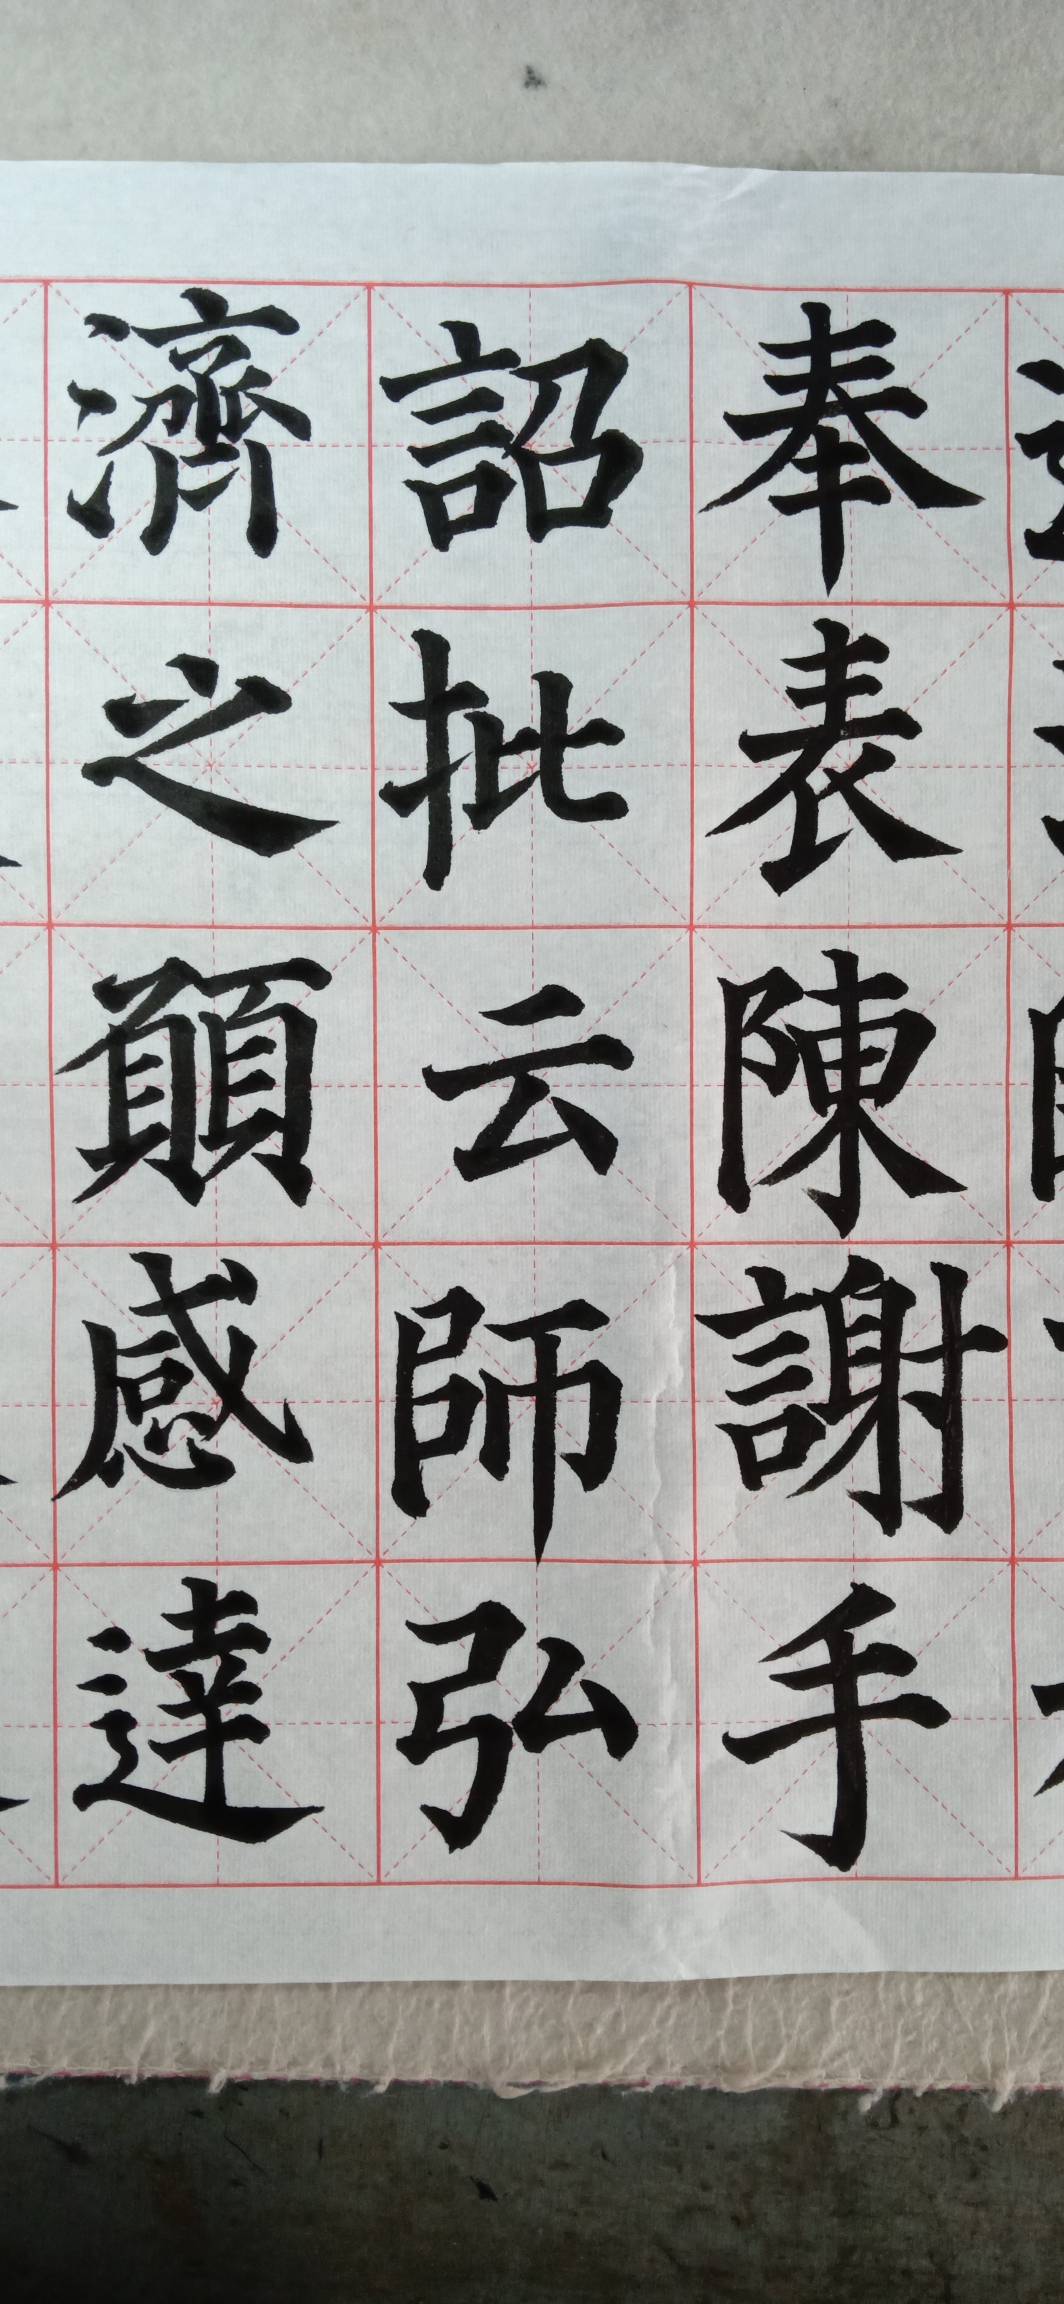 奉表陳謝手
詔批云師弘
濟之願感達